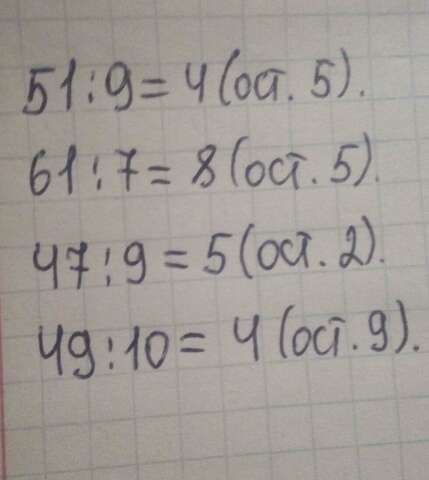 51:9=4(ост. 5).
61:7=8(ост. 5).
47:9=5(ост. 2).
49:10=4(ост. 9).